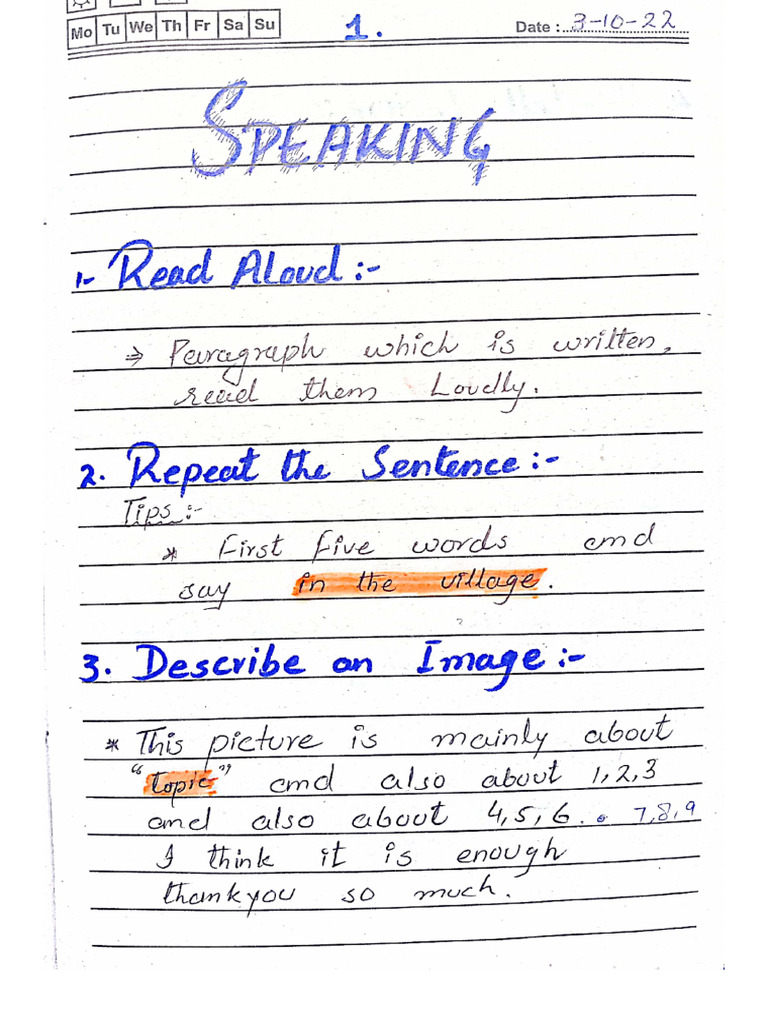 Mo Tu We Th Fr Sa Su
1.
Date : 3-10-22
SPEAKING
1- Read Aloud:-
⇒ Paragraph which is written,
read them Loudly.
2. Repeat the Sentence:-
Tips:-
* First five words and
say in the village.
3. Describe an Image:-
* This picture is mainly about
"topic" and also about 1,2,3
and also about 4,5,6. 7,8,9
I think it is enough
thankyou so much.